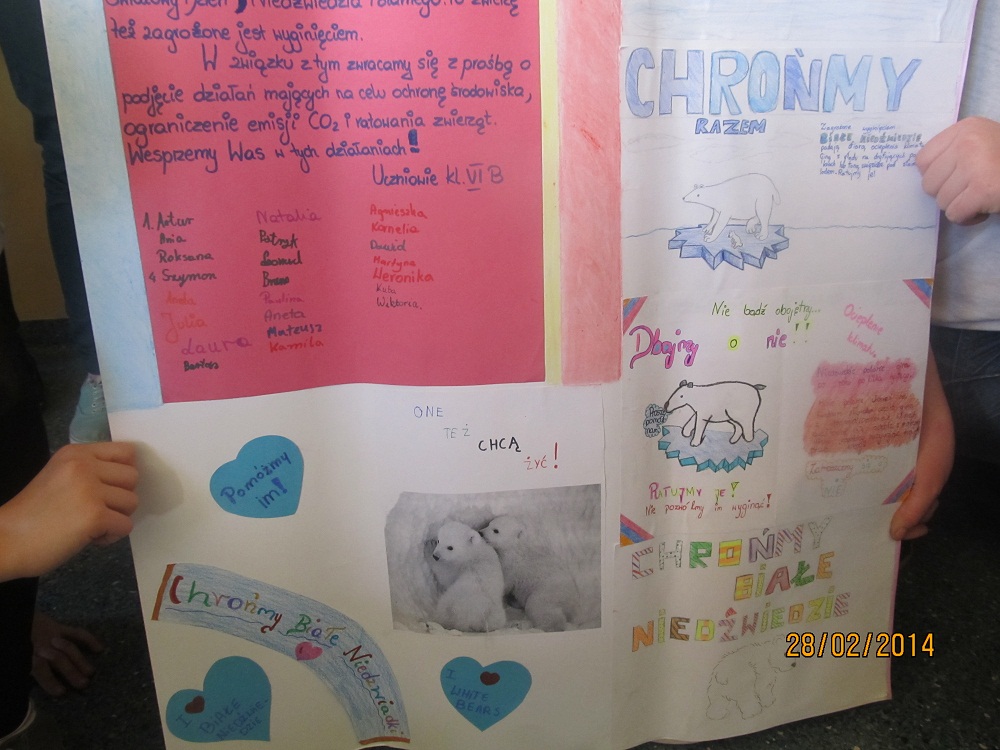 Niedźwiedzia Polarnego. To zwierzę
też zagrożone jest wyginięciem.
W związku z tym zwracamy się z prośbą o
podjęcie działań mających na celu ochronę środowiska,
ograniczenie emisji CO2 i ratowania zwierząt.
Wesprzemy Was w tych działaniach!
Uczniowie kl. VI B
1. Artur
Ania
Roksana
4 Szymon
Julia
Laura
Bartosz
Natalia
Patryk
Bruno
Paulina
Aneta
Mateusz
Kamila
Agnieszka
Kornelia
Dawid
Martyna
Weronika
Kuba
Wiktoria
ONE
TEŻ
CHCĄ
ŻYĆ!
Pomóżmy
im!
Chrońmy Białe Niedzwiadki
I
BIAŁE
NIEDŹWIE-
DZIE
I
WHITE
BEARS
CHROŃMY
RAZEM
Zagrożone wyginięciem
Białe niedźwiedzie
Nie bądź obojętny...
Dbajmy o nie!!
Ocieplenie
klimatu
RATUJMY JE!
Nie pozwólmy im wyginąć!
CHROŃMY
BIAŁE
NIEDŹWIEDZIE
28/02/2014